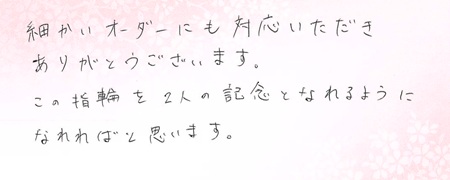 細かいオーダーにも対応いただき
ありがとうございます。
この指輪を2人の記念となれるように
なれればと思います。